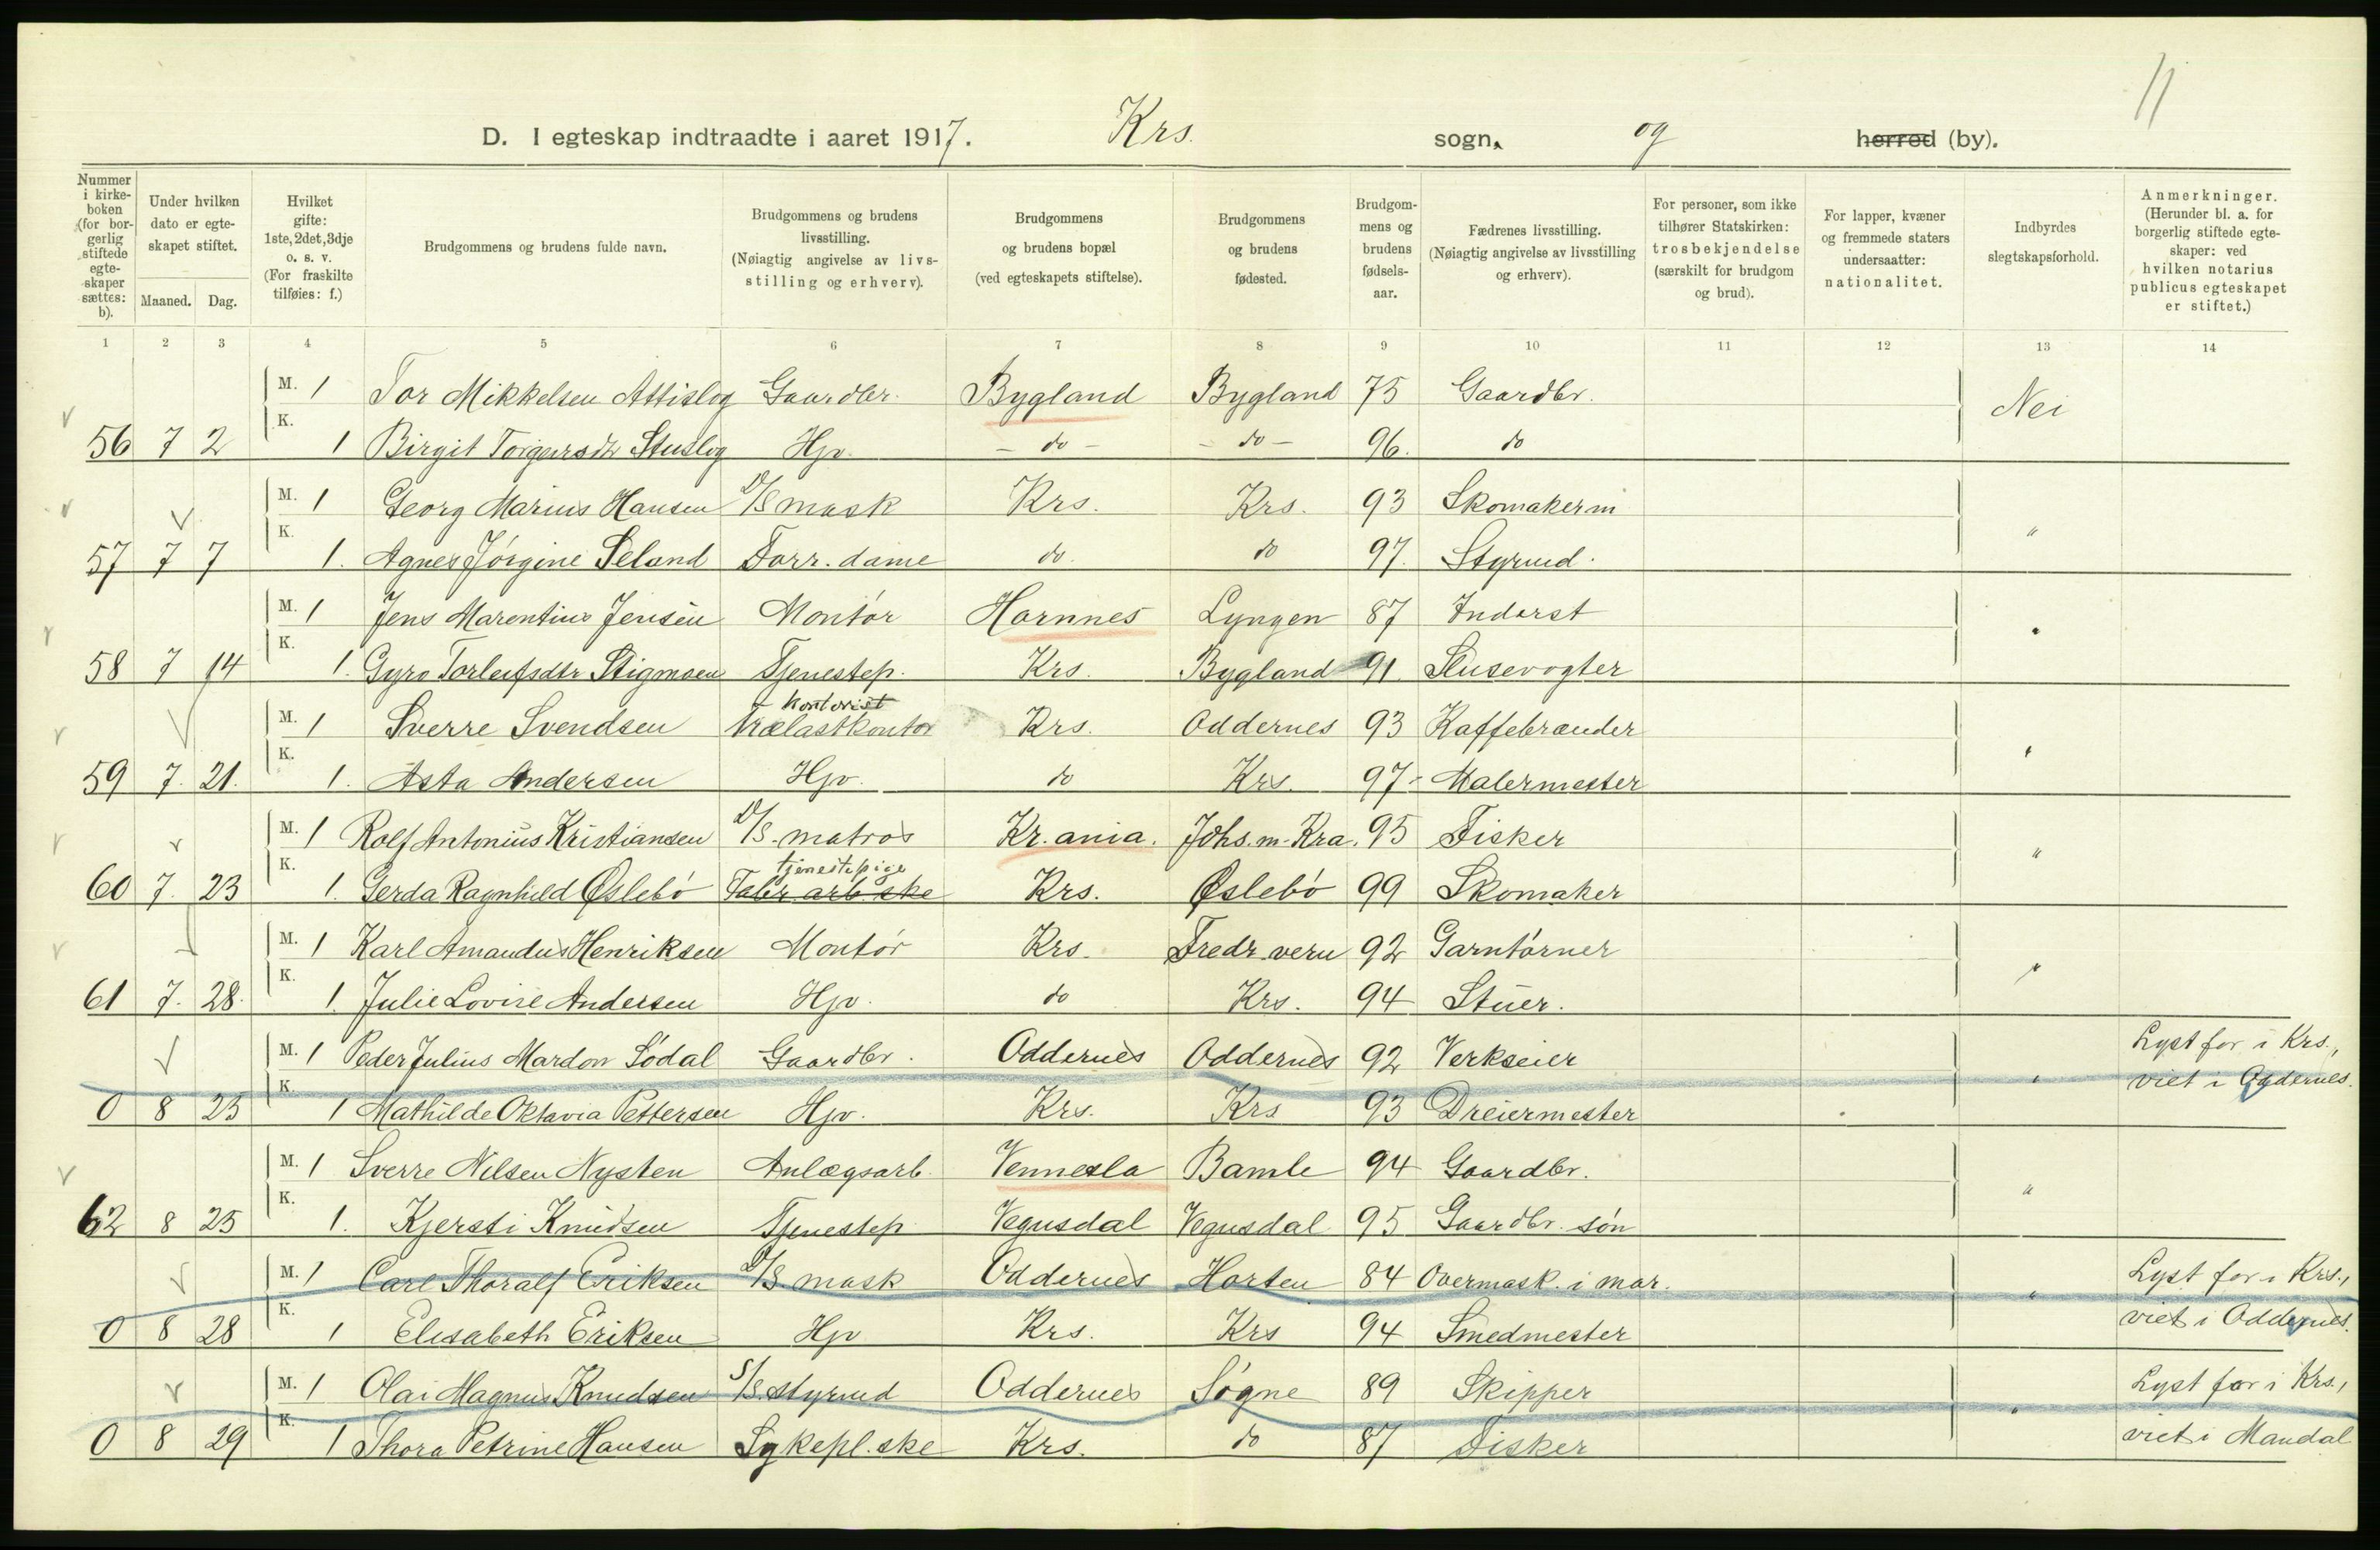 11
D. I egteskap indtraadte i aaret 1917. Krs. sogn, og herred (by).
Nummer i kirkeboken (for borgerlig stiftede egteskaper sættes: b).
Under hvilken dato er egteskapet stiftet.
Maaned. Dag.
Hvilket gifte: 1ste, 2det, 3dje o. s. v. (For fraskilte tilføies: f.)
Brudgommens og brudens fulde navn.
Brudgommens og brudens livsstilling. (Nøiagtig angivelse av livsstilling og erhverv).
Brudgommens og brudens bopæl (ved egteskapets stiftelse).
Brudgommens og brudens fødested.
Brudgommens og brudens fødselsaar.
Fædrenes livsstilling. (Nøiagtig angivelse av livsstilling og erhverv).
For personer, som ikke tilhører Statskirken: trosbekjendelse (særskilt for brudgom og brud).
For lapper, kvæner og fremmede staters undersaatter: nationalitet.
Indbyrdes slegtskapsforhold.
Anmerkninger. (Herunder bl. a. for borgerlig stiftede egteskaper: ved hvilken notarius publicus egteskapet er stiftet.)
1 2 3 4 5 6 7 8 9 10 11 12 13 14
M. 1 Tor Mikkelsen Attislog Gaardbr. Bygland Bygland 75 Gaardbr. Nei
56 7 2 K. 1 Birgit Torgersdr Stuslog Hjv. - do - - do - 96. do
M. 1 Georg Marius Hansen D/S mask Krs. Krs. 93 Skomakerm "
57 7 7 K. 1. Agnes Jörgine Seland Forr. dame do. do 97. Styrmd.
M. 1 Jens Marentius Jensen Montör Hornnes Lyngen 87 Inderst "
58 7 14 K. 1. Gyro Torleifsdtr Stigmoen Tjenestep. Krs. Bygland 91 Slusevogter
kontorist
M. 1 Sverre Svendsen trælastkontor Krs. Oddernes 93 Kaffebrænder "
59 7. 21. K. 1. Asta Andersen Hjv. do Krs. 97- Malermester
M. 1 Rolf Antonius Kristiansen D/S. matros Kr.ania. Johs.m-Kra. 95 Fisker "
tjenestepige
60 7. 23 K. 1. Gerda Ragnhild Øslebö Fabr. arb.ske Krs. Øslebö 99 Skomaker
M. 1 Karl Amandus Henriksen Montör Krs. Fredr.vern 92 Garntörner "
61 7. 28. K. 1. Julie Lovise Andersen Hjv. do Krs. 94 Stuer.
M. 1 Peder Julius Mardon Södal Gaardbr. Oddernes Oddernes 92 Verkseier " Lyst for i Krs.,
0 8 25 K. 1 Mathilde Oktavia Pettersen Hjv. Krs. Krs 93 Dreiermester viet i Oddernes.
M. 1 Sverre Nilsen Nysten Anlægsarb. Vennesla Bamle 94 Gaardbr. "
62 8 25 K. 1. Kjersti Knudsen Tjenestep. Vegusdal Vegusdal 95 Gaardbr. sön
M. 1 Carl Thoralf Eriksen D/S mask Oddernes Horten 84 Overmask. i mar. " Lyst for i Krs.,
0 8 28 K. 1 Elisabeth Eriksen Hjv Krs. Krs 94 Smedmester viet i Oddernes.
M. 1 Olai Magnus Knudsen S/S. styrmd Oddernes Sögne 89 Skipper " Lyst for i Krs.,
0 8 29 K. 1 Thora Petrine Hansen Sykepl.ske Krs. do 87 Fisker viet i Mandal